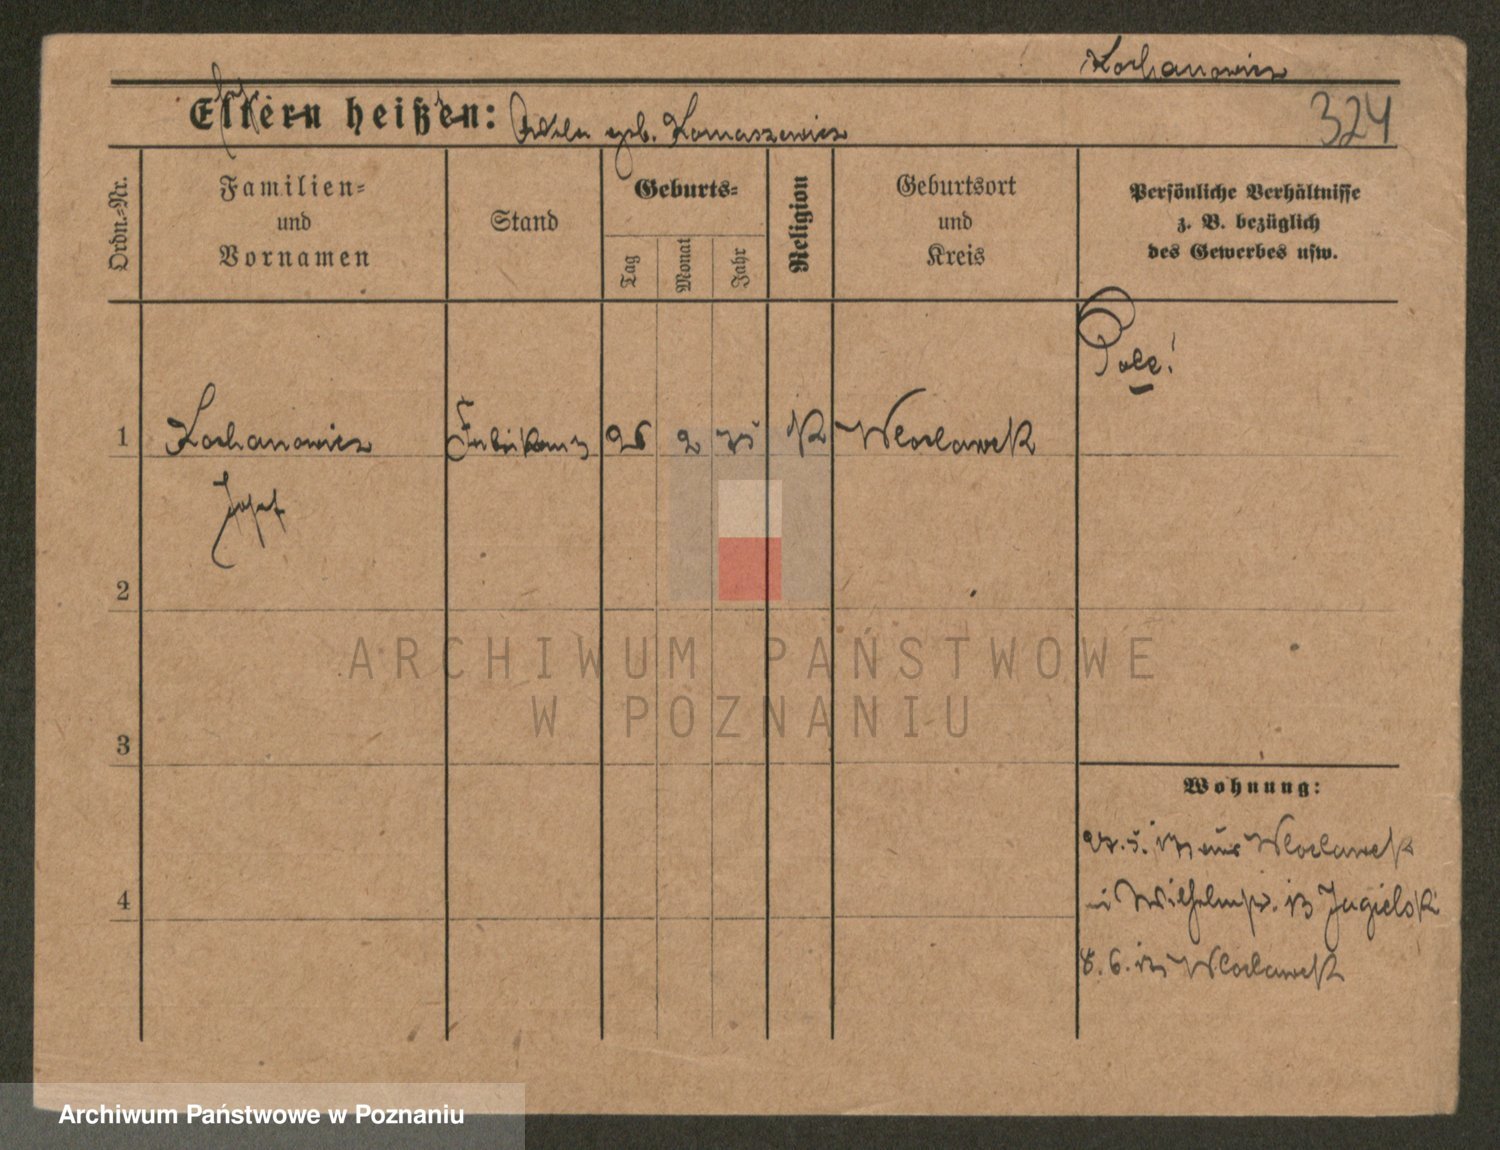 Kochanowicz
Eltern heißen: geb. Tomaszewicz
324
Ordn.=Nr.
Familien=
und
Vornamen
Stand
Geburts=
Tag
Monat
Jahr
Religion
Geburtsort
und
Kreis
Persönliche Verhältnisse
z. B. bezüglich
des Gewerbes usw.
Pole!
1
Kochanowicz
2
K
Wloclawek
Josef
2
3
4
Wohnung:
Wloclawek
Wilhelmstr. 13 Jagielski
8. 6. Wloclawek
ARCHIWUM PAŃSTWOWE
W POZNANIU
Archiwum Państwowe w Poznaniu